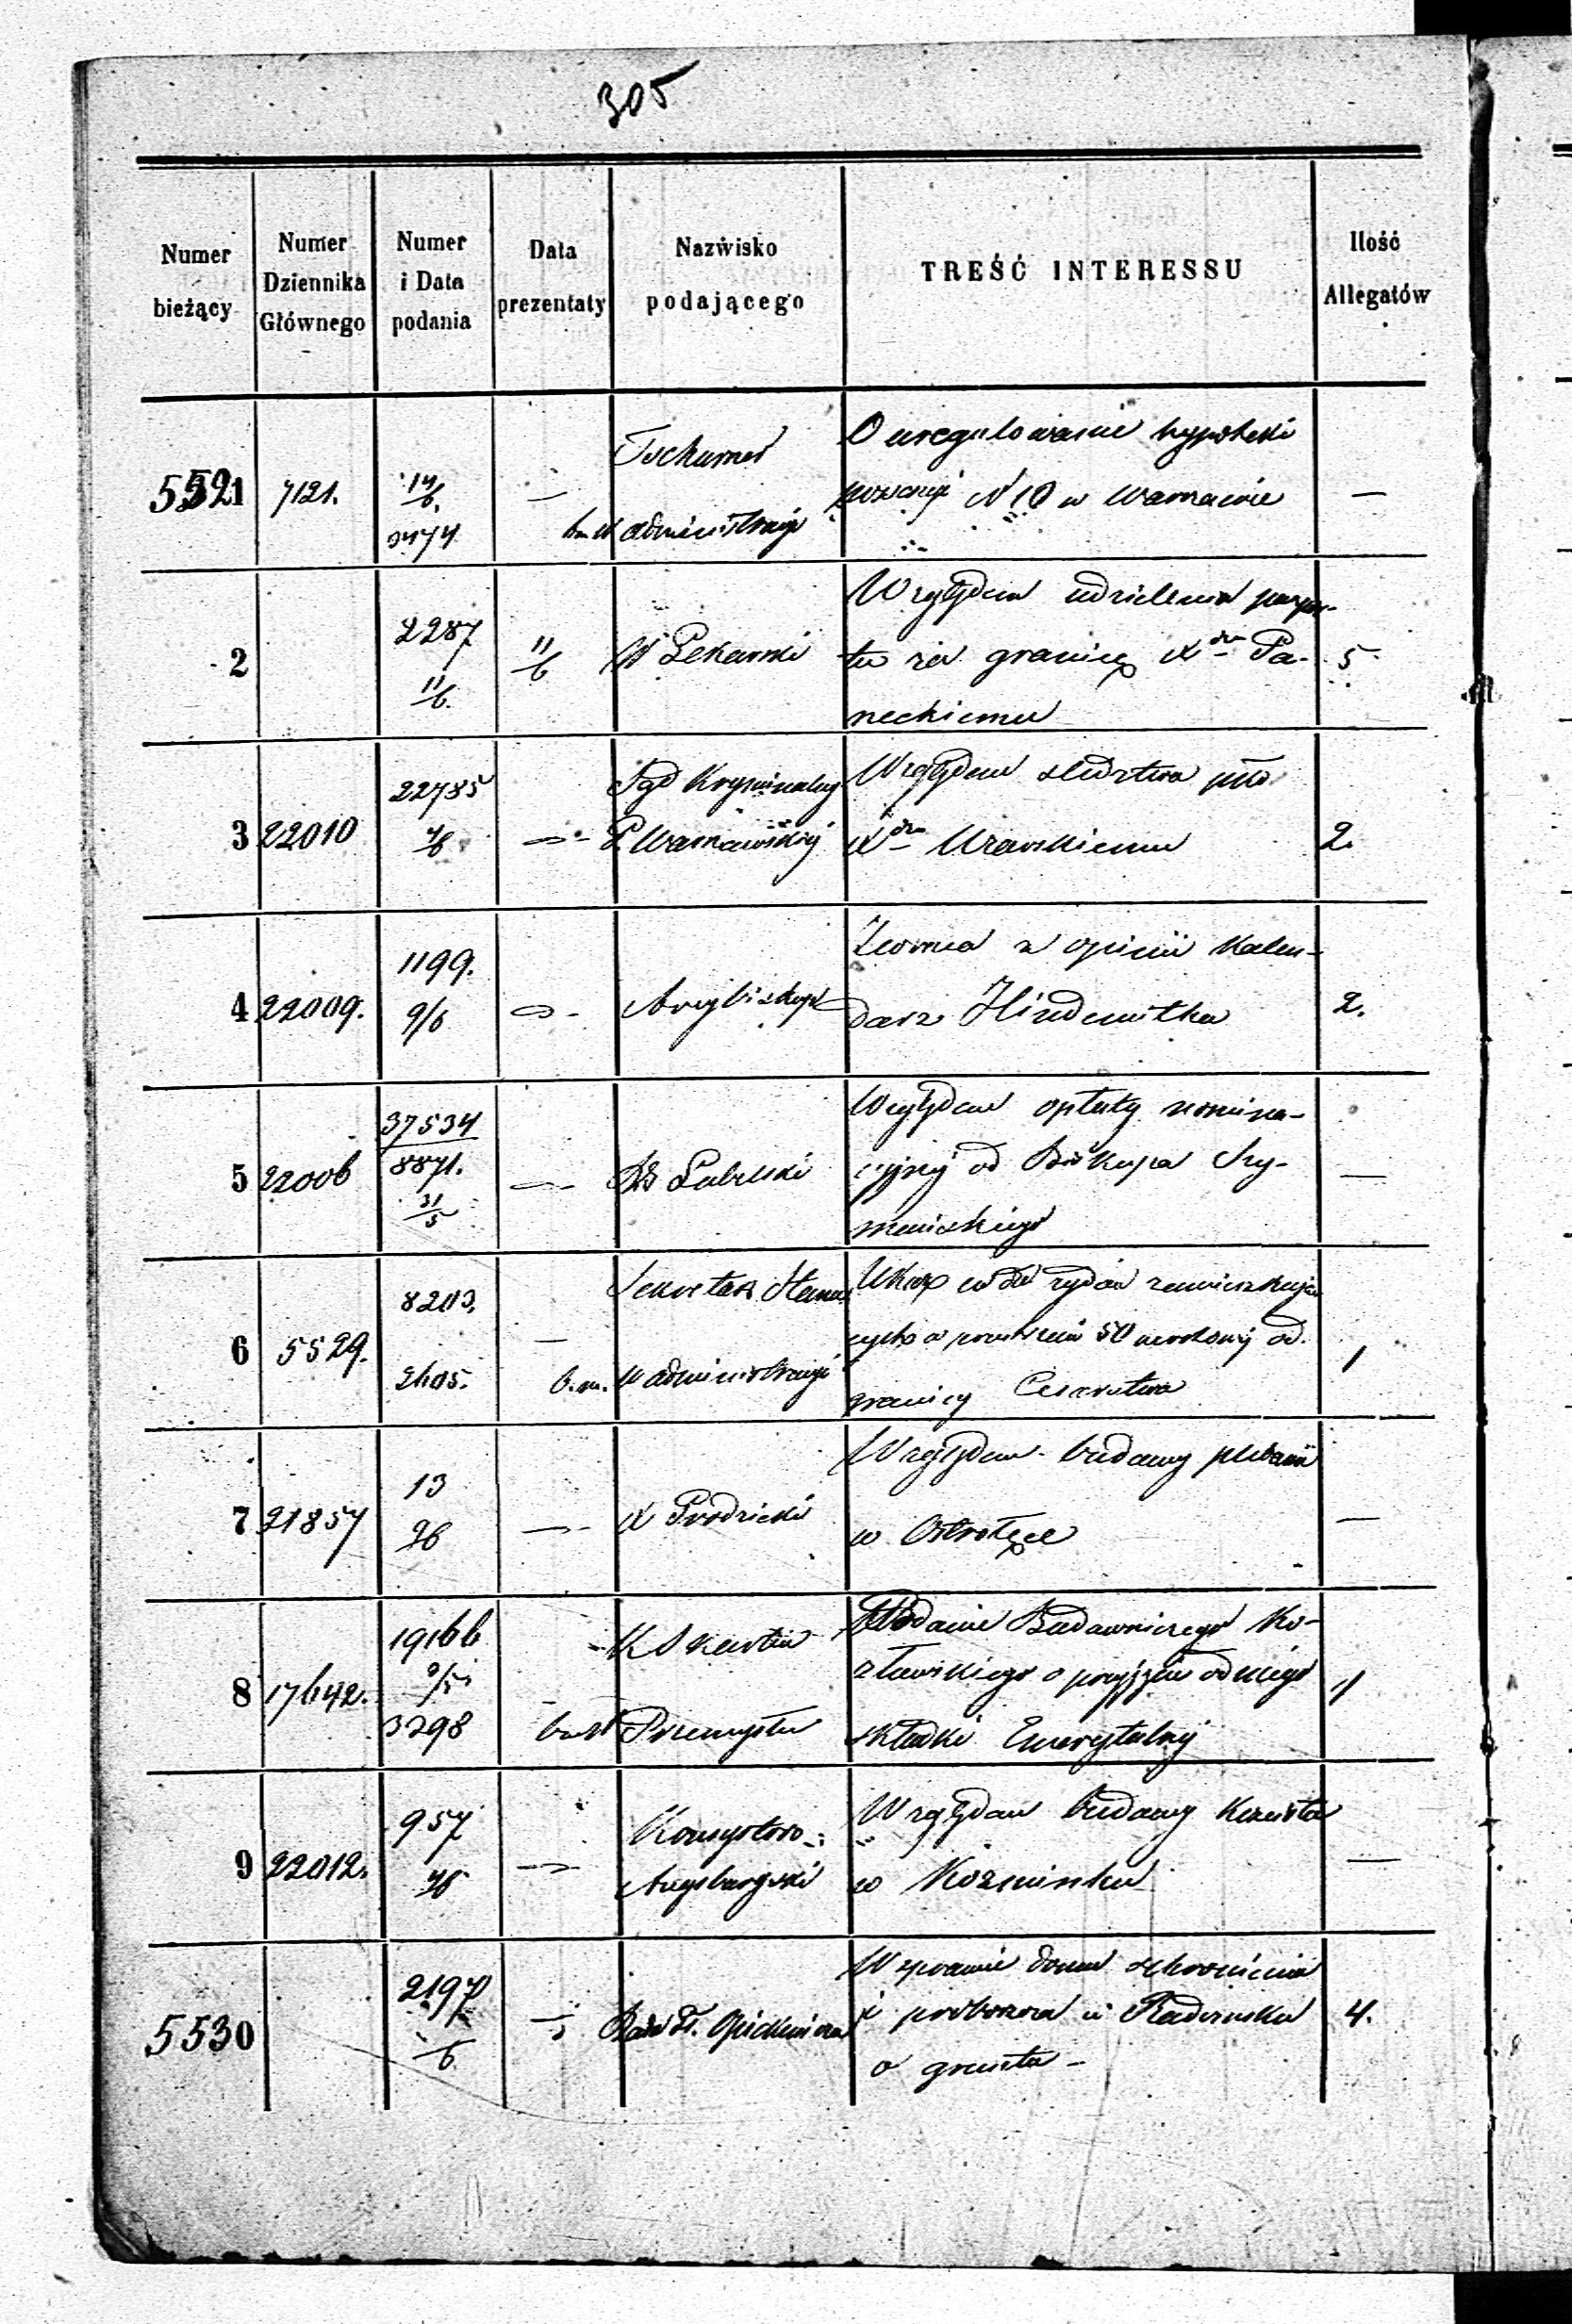 305
Numer bieżący
Numer Dziennika Głównego
Numer i Data podania
Data prezentaty
Nazwisko podającego
TREŚĆ INTERESSU
Ilość Allegatów
5521 7121. 14/6. 3474 — Tschurner
administracyi
O uregulowanie hypoteki
N 10 w Warszawie
—
2 2287 11/6. 11/6 W Pekarski
Względem udzielenia paszpor-
tu za granicę Xdzu Pa-
neckiemu
5
3 22010 22785 4/6 — Sąd Kryminalny
G. Warszawskiej
Względem śledztwa pko
Xdzu Urawskiemu
2.
4 22009. 1199. 9/6 — Arcybiskup
Zwraca z opinii Kalen-
darz Hindemitha
2.
5 22006 37534 8871. 31/5 — Lubelski
Względem opłaty nomina-
cyjnej od Biskupa Szy-
mańskiego
—
6 5529. 8203, 2605. — Sekretarz Stanu
b.m. w administracyi
Ukaz żydów zamieszkują-
cych w przestrzeni 50 wiorstowej od
granicy Cesarstwa
1
7 21857 13 2/6 — X Prodzicki
Względem budowy plebanii
w Ostrołęce
—
8 17642. 19166 9/5 3298 K Skarbu
Przemysłu
Podanie Budowniczego Ko-
złowskiego o przyjęcie od niego
składki Emerytalnej
1
9 22012. 957 4/6 — Konsystorz
Augsburgski
Względem budowy Kościoła
w Koźminku
—
5530 2197 Rada Opiekuńcza
W sprawie domu schronienia
i proboszcza w Radzyminku
o grunta —
4.